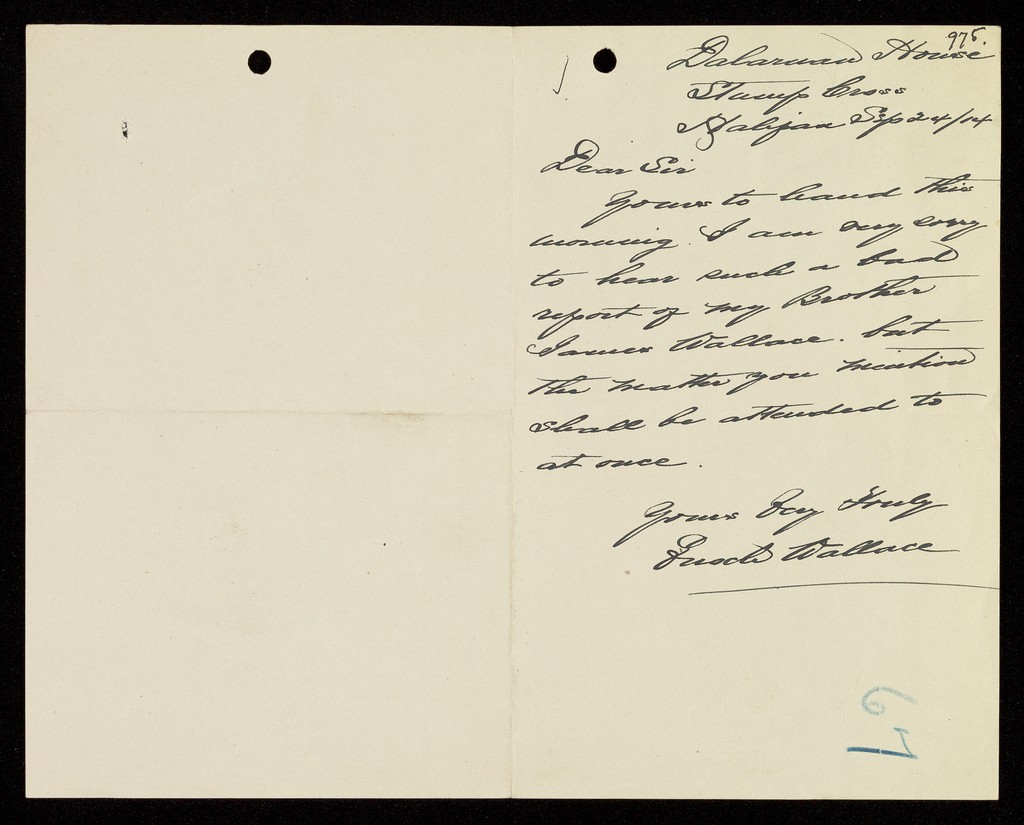 975.
Dalarnan House
Stump Cross
Halifax Sep 24/14
Dear Sir
Yours to hand this
morning. I am very sorry
to hear such a bad
report of my Brother
James Wallace. but
the matter you mention
shall be attended to
at once.
Yours Very Truly
Wallace
67